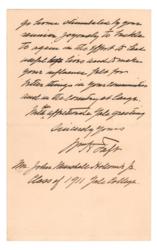 go home stimulated by your
reunion joyously to tackle
to again in the effort to lead
useful lives and to make
your influence felt for
better things in your communities
and in the Country at large.
With affectionate Yale greeting
Sincerely yours
Wm H Taft
Mr. John Marshall Holcombe Jr.
Class of 1911 Yale College